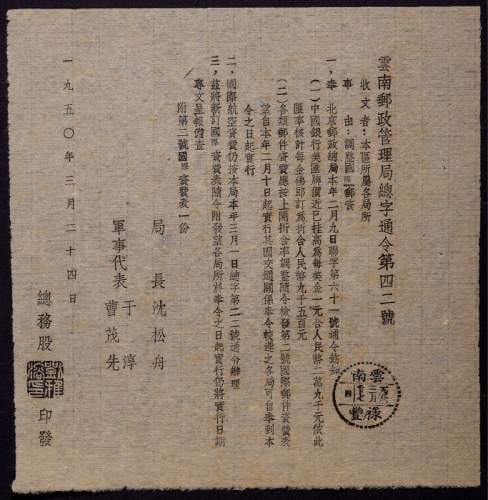 雲南郵政管理局總字通令第四二號
收文者：本區所屬各局所
事　由：調整國際郵資
一，奉　北京郵政總局本年二月九日聯字第六十一號通令節知
（一）中國銀行美匯牌價近已挂高為每美金一元合人民幣二萬九千元依此
匯率核計每金佛郎訂為折合人民幣九千五百元
（二）各類郵件資費應按上開折合率調整隨令檢發第二號國際郵件資費表
望自本年二月十日起實行其因交通關係奉令較遲之各局可自奉到本
令之日起實行
二，國際航空資費仍按本局本年三月一日總字第二二號通令辦理
三，茲將新訂國際資費表隨令附發望各局所於奉令之日起實行仍將實行日期
專文呈報備查
附第二號國際資費表一份
局　長沈松舟
軍事代表于　淳
曹茂先
一九五〇年三月二十四日
總務股
印發
雲南
三月
四
祿豐